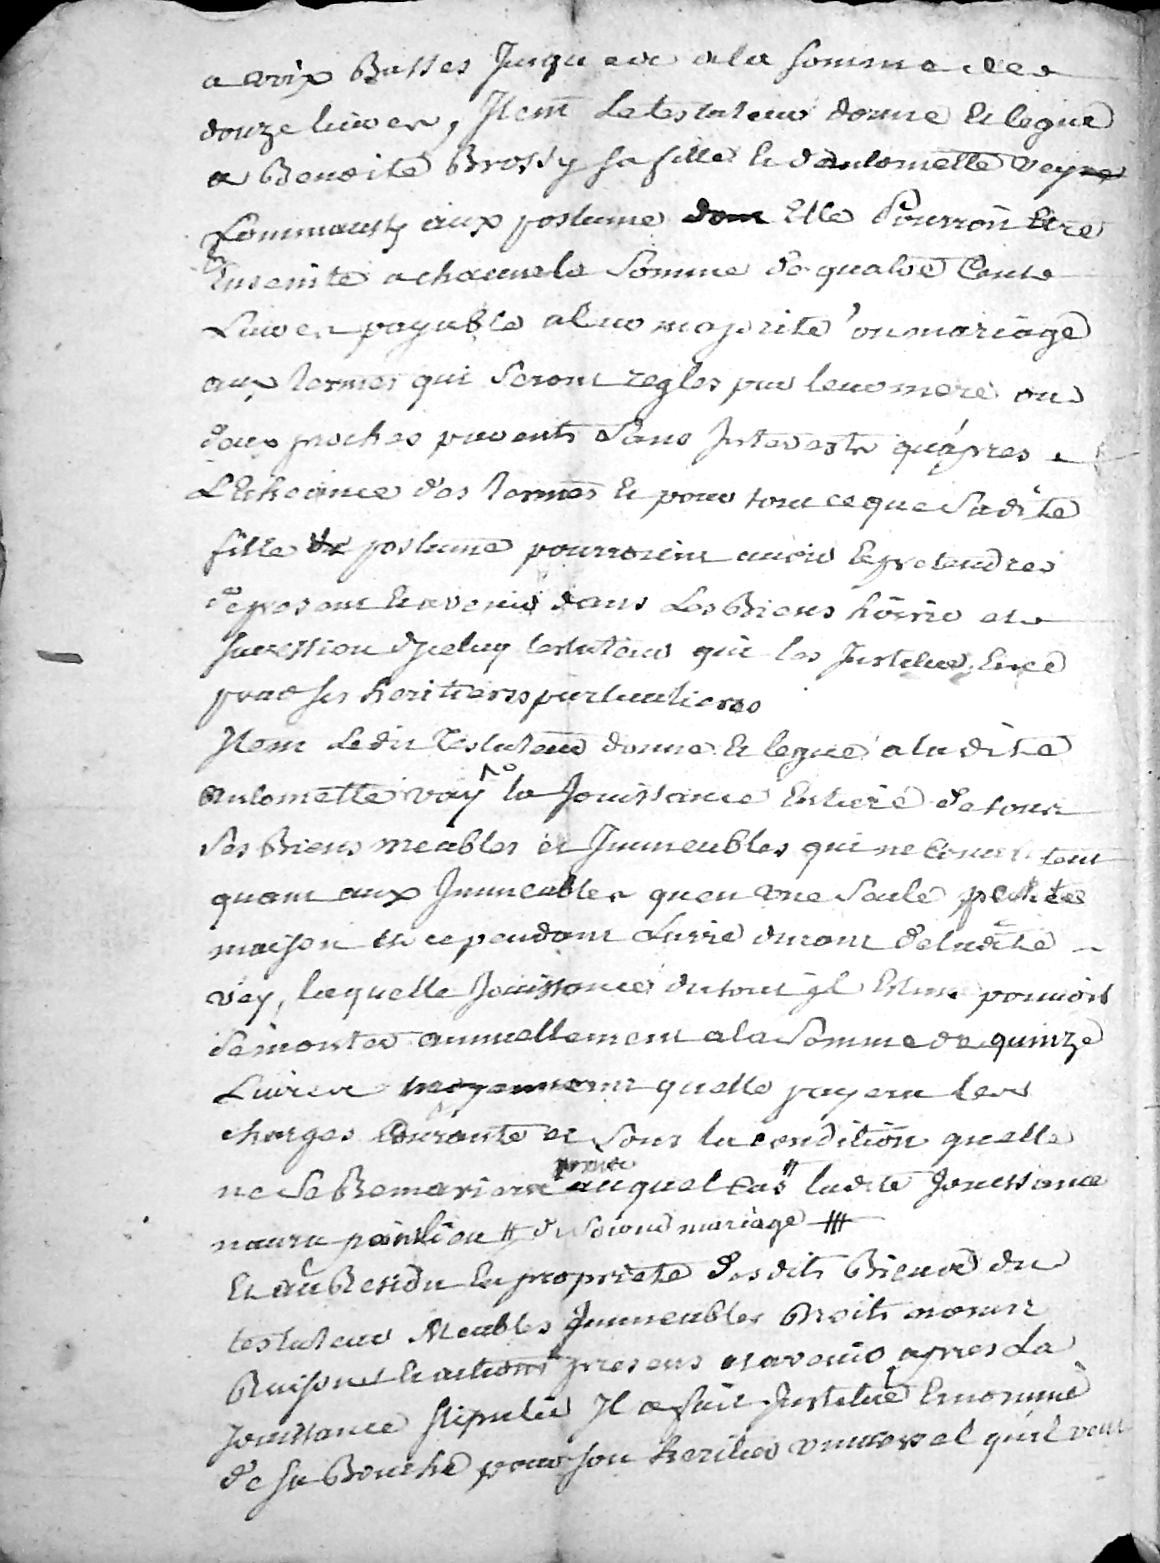 a voix Basses Jusqu a la somme de
douze livres, Item le testateur donne et legue
a Benoite Brossy sa fille et d'antoinette vey
aux postume dont Elle Pourroit Etre
Enseinte a chacun la Somme de quatre Cents
Livres payable a leur majorite ou mariage
aux termes qui Seront regles par leur mere ou
deux proches parents Sans Interests qu'apres
L'Echeance des termes Et pour tout ce que Sadite
fille et postume pourroient avoir et pretendres
de present Et avenir dans Les Biens hoirie et
succession d'Iceluy testateur qui les Institue En ce
pour ses heritieres particulieres
Item Ledit Testateur donne Et legue a ladite
antoinette vey la Jouissance Entiere de tous
Ses Biens meubles et Immeubles qui ne Consistent
quant aux Immeubles qu'en une Seule petite
maison Et ce pendant La vie durant de ladite
vey, laquelle Jouissance du tout il Estime pouvoir
Se monter annuellement a la Somme de quinze
Livres moyennant quelle payera les
charges Courante et Sous la condition quelle
ne Se Remariera auquel Cas ladite Jouissance
naura point lieu # de Second mariage #
Et au Residu En propriete desdits Biens du
testateur Meubles Immeubles Droits noms
Raisons Et actions presens et avenir apres La
Jouissance stipulée Il a fait Institué Et nommé
de sa Bouche pour son heritier universel qu'il veut